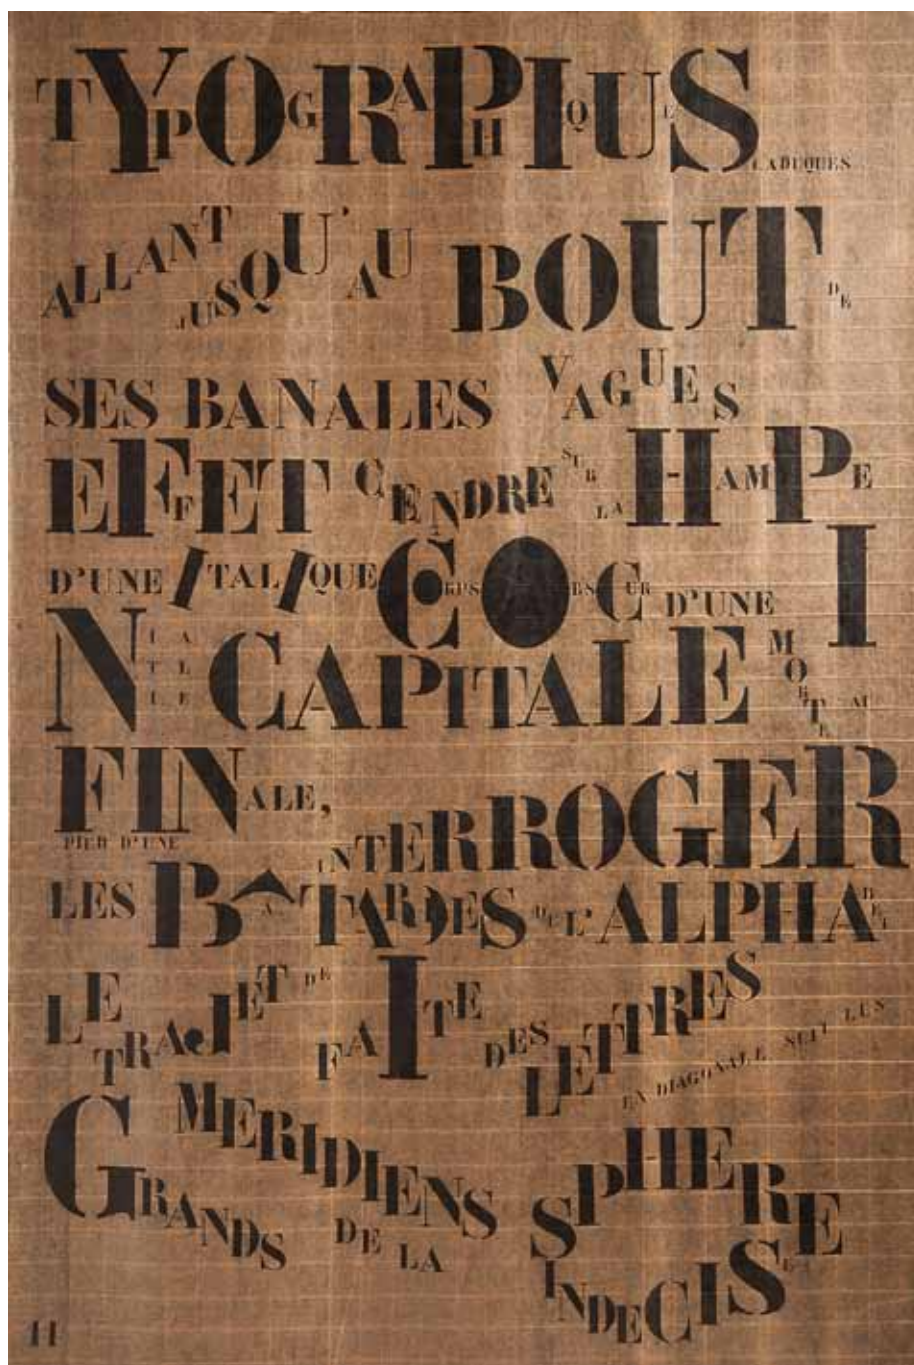 TYPOGRAPHIQUES CADUQUES
ALLANT JUSQU'AU BOUT DE
SES BANALES VAGUES
EFFET CENDRE SUR LA HAMPE
D'UNE ITALIQUE CORPS OBSCUR D'UNE
INITIALE CAPITALE MORTE AU
PIED D'UNE FINALE, INTERROGER
LES BÂTARDES DE L'ALPHABET
LE TRAJET DE FAITE DES LETTRES EN DIAGONALE SUIT LES
GRANDS MERIDIENS DE LA SPHERE
INDECISE
11